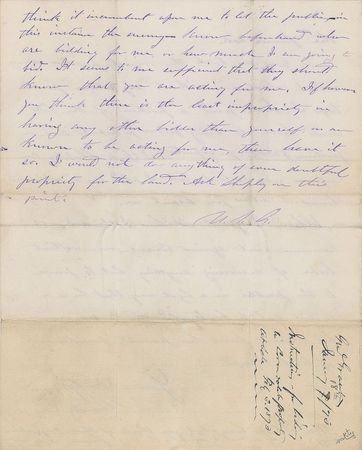 think it incumbent upon me to let the public, in
this instance the enemy, know beforehand who
are bidding for me or how much I am going to
bid. It seems to me sufficient that they should
know that you are acting for me. If however
you think there is the least impropriety in
having any other bidder than yourself, or one
known to be acting for me, then leave it
so. I would not do anything of even doubtful
propriety for the land. Ask Shipley on this
point.
U. S. G.
Jany 18th /73
Instructions for bidding